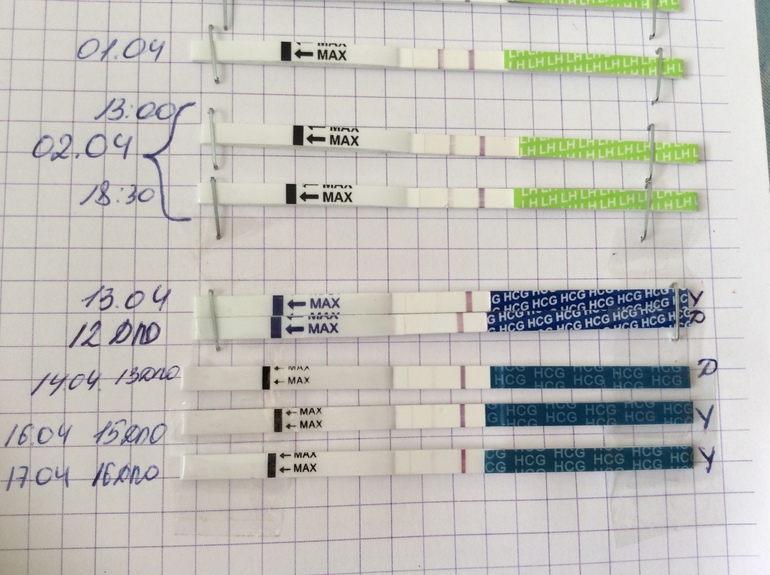 01.04 MAX MAX LH LH LH LH LH LH
13:00
02.04 MAX MAX LH LH LH LH LH LH LHL
18:30 MAX MAX LH LH LH LH LH LH LHL
13.04 MAX HCG HCG HCG HCG HCG У
12 ДПО MAX HCG HCG HCG HCG HCG Д
14.04 13ДПО MAX MAX HCG HCG HCG HCG HCG Д
16.04 15ДПО MAX MAX HCG HCG HCG HCG HCG У
17.04 16ДПО MAX MAX HCG HCG HCG HCG HCG У